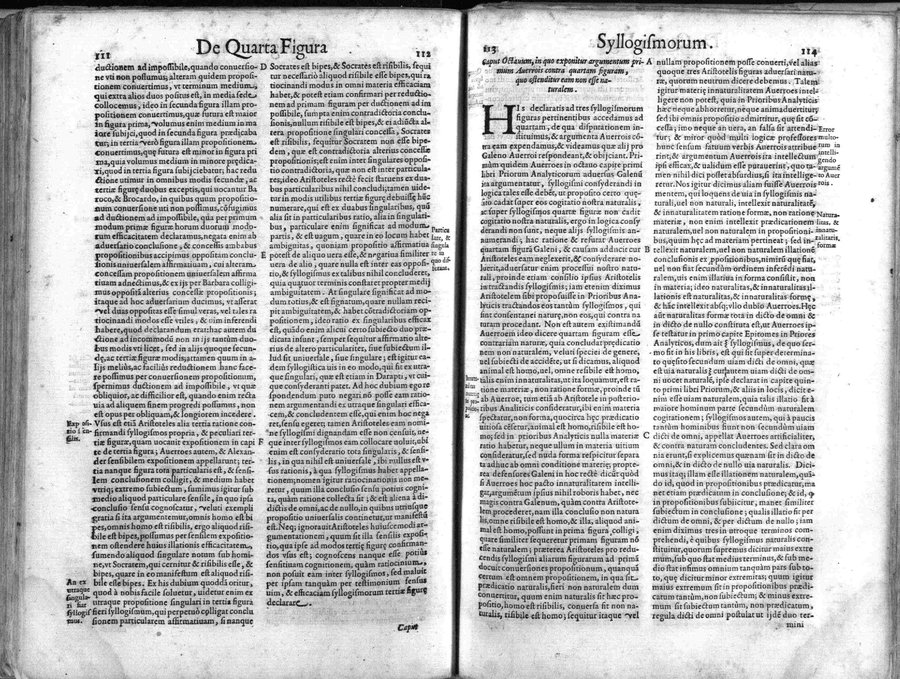 De Quarta Figura
111
112
ductionem ad impossibile, quando conuersio-
ne vti non possumus; alteram quidem proposi-
tionem conuertimus, vt terminum medium,
qui extra alios duos positus est, in media sede
collocemus, ideo in secunda figura illam pro-
positionem conuertimus, quæ futura est maior
in figura prima, volumus enim medium in ma
iore subijci, quod in secunda figura prædicaba
tur; in tertia verò figura illam propositionem
conuertimus, quæ futura est minor in figura pri
ma, quia volumus medium in minore prædica-
ri, quod in tertia figura subijciebatur; hac redu
ctione utimur in omnibus modis secundæ, ac
tertiæ figuræ duobus exceptis, qui vocantur Ba
roco, & Brocardo, in quibus quum propositio-
num conuersione uti non possimus, cõfugimus
ad ductionem ad impossibile, qua per primum
modum primæ figuræ horum duorum modo-
rum efficacitatem declaramus, negata enim ab
aduersario conclusione, & concessis ambabus
propositionibus accipimus oppositam conclu-
sionis vniuersalem affirmatiuam, cui alteram
concessam propositionem uniuersalem affirma
tiuam adnectimus, & ex ijs per Barbara colligi-
mus oppositã alterius concessæ propositionis;
itaque ad hoc aduersarium ducimus, vt asserat
vel duas oppositas esse simul veras, vel tales ra
tiocinandi modos esse vtiles, & uim inferendi
habere, quod declarandum erat: hac autem du
ctione ad incommodũ non in ijs tantum duo-
bus modis vti licet, sed in alijs quoque secun-
dæ, ac tertiæ figuræ modis, attamen quum in a-
lijs meliùs, ac faciliùs reductionem hanc face-
re possimus per conuersionem propositionum,
spernimus ductionem ad impossibile, vt quæ
obliquior, ac difficilior est, quando enim recta
uia ad aliquem finem progredi possumus, non
est opus per obliquam, & longiorem incedere.
Vsus est etiã Aristoteles alia tertia ratione con-
firmandi syllogismos propria, & peculiari ter-
tiæ figuræ, quam uocant expositionem in capi-
te de tertia figura; Auerroes autem, & Alexan-
der sensibilem expositionem appellarunt; ter-
tia nanque figura tota particularis est, & sensi-
lem conclusionem colligit, & medium habet
vtriq; extremo subiectum, sumimus igitur sub
medio aliquod particulare sensile, in quo ipsa
conclusio sensu cognoscatur, veluti exempli
gratia si ita argumentemur, omnis homo est bi
pes, omnis homo est risibilis, ergo aliquod risi-
bile est bipes, possumus per sensilem expositio-
nem ostendere huius illationis efficacitatem,
sumendo aliquod singulare notum sub homi-
ne, vt Socratem, qui cernitur & risibilis esse, &
bipes, quare in eo manifestum est aliquod risi-
bile esse bipes. Ex his dubium quoddã oritur,
quod à nobis facile soluetur, uidetur enim ex
utraque propositione singulari in tertia figura
fieri syllogismum, qui perpetuò colligat conclu
sionem particularem affirmatiuam, si nanque
Exp ositio
io s en-
silis.
An ex
utraque
singula-
ri fiat
syllogis
mus.
D Socrates est bipes, & Socrates est risibilis, sequi
tur necessariò aliquod risibile esse bipes, qui ra
tiocinandi modus in omni materia efficaciam
habet, & potest etiam confirmari per reductio-
nem ad primam figuram per ductionem ad im
possibile, sumpta enim contradictoria conclu-
sionis, nullum risibile est bipes, & ei addita al-
tera propositione singulari concessa, Socrates
est risibilis, sequitur Socratem non esse bipe-
dem, quæ est contradictoria alterius concessæ
propositionis; est enim inter singulares opposi-
tio contradictoria, quæ non est inter particula-
res, ideo Aristoteles rectè fecit declarans ex dua
bus particularibus nihil concludi, tamen uide-
tur in modis utilibus tertiæ figuræ debuisse hũc
numerare, qui est ex duabus singularibus, quũ
alia sit in particularibus ratio, alia in singulari-
bus, particulare enim significat ad modum,
E particulæ, est & uagum, quare in eo locum habet
ambiguitas, quoniam propositio affirmatiua
potest de aliquo uera esse, & negatiua similiter
uera de alio, quare nulla est inter eas oppositio
tio, & syllogismus ex talibus nihil concluderet,
quia quatuor terminis constaret propter medij
ambiguitatem. At singulare significat ad mo-
dum totius, & est signatum, quare nullam reci
pit ambiguitatem, & habet cõtradictoriam op-
positionem, ideo ratio ex singularibus efficax
est, quùdo enim alicui certo subiecto duo præ-
dicata insunt, semper sequitur affirmatio alte-
rius de altero particulariter, siue subiectum il-
lud sit uniuersale, siue singulare; est igitur ea-
dem syllogistica uis in eo modo, qui fit ex utra-
que singulari, quæ est etiam in Darapti, vt cui-
que considerãti patet. Ad hoc dubium ego re
spondendum puto negari nõ posse eam ratio-
nem argumentandi efficacem esse, & omnino
concludentem esse concessam, qui etiam hoc nega
ret, sensu egeret; tamen Aristoteles eam nomi-
ne syllogismi dignandam esse non censuit, ne-
que inter syllogismos eam collocare uoluit, ubi
enim est consideratio singularis, quæ est & sensi-
lis, in qua nihil est uniuersale, ibi nullus est v-
sus rationis, à qua syllogismus habet appellatio-
nem; nomen igitur ratiocinationis non me-
retur, quum illa conclusio sensu potius cogni-
ta, quàm ratione collecta sit; & est aliena à di-
dictis de omni, ac de nullo, in quibus utriusque
propositio uniuersalis continetur, ut manifestũ
est. Neq; ignorauit Aristoteles huiuscemodi ar-
gumentationem, quum sit illa sensilis exposi-
tio, qua ipse ad modos tertiæ figuræ confirman-
dos vsus est; cognoscens nanque esse potiùs
sensitiuam cognitionem, quàm ratiocinium,
non posuit eam inter syllogismos, sed maluit
per ipsam tanquam per testimonium sensus
uim, & efficaciam syllogismorum tertiæ figuræ
declarare.
Caput
Syllogismorum.
113
114
Caput Octauum, in quo exponitur argumentum pri-
mum Auerrois contra quartam figuram,
quo ostenditur eam non esse na-
turalem.
HIs declaratis ad tres syllogismorum
figuras pertinentibus accedamus ad
quartam, de qua disputationem in-
stituimus, & argumenta Auerrois cõ-
tra eam expendamus, & videamus quæ alij pro
Galeno Auerroi respondeant, & obijciant. Pri-
mùm quidem Auerroes in octauo capite primi
libri Priorum Analyticorum aduersus Galenũ
ita argumentatur, syllogismi considerandi in
logica tales esse debẽt, ut proposito certo quæ-
sito cadat super eos cogitatio nostra naturalis,
at super syllogismos quartæ figuræ non cadit
cogitatio nostra naturalis, ergo in logica consi-
derandi non sunt, neque alijs syllogismis an-
numerandi; hac ratione & refutat Auerroes
quartam figuram Galeni, & causam adducit cur
Aristoteles eam neglexerit, & considerare no-
luerit, aduersatur enim processui nostro natu-
rali, proinde etiam consilio ipsius Aristotelis
in tractandis syllogismis; iam etenim diximus
Aristotelem sibi proposuisse in Prioribus Ana-
lyticis tractandos eos tantùm syllogismos, qui
sint consentanei naturæ, non eos, qui contra na
turam procedant. Non est autem existimandũ
Auerroem ideo dicere quartam figuram esse
contrariam naturæ, quia concludat prædicatio
nem non naturalem, veluti speciei de genere,
uel subiecti de accidẽte, ut si dicamus, aliquod
animal est homo, uel, omne resibile est homo,
talis enim innaturalitas, ut ita loquamur, est ra-
tione materiæ, non ratione formæ, proinde tũ
ab Auerroe, tum etiã ab Aristotele in posterio-
ribus Analiticis consideratur, ibi enim materia
spectatur, non forma, quo circa hæc prædicatio
uitiosa cẽsetur, animal est homo, risibile est ho-
mo; sed in prioribus Analyticis nulla materiæ
ratio habetur, neque ullum in materia uitium
consideratur, sed nuda forma respicitur separa
ta adhuc ab omni conditione materiæ; propte-
rea defensores Galeni in hoc rectè dicũt quòd
si Auerroes hoc pacto innaturalitatem intelli-
gat, argumentum ipsius nihil roboris habet, nec
magis contra Galenum, quàm contra Aristote-
lem procederet, nam illa conclusio non natura
lis, omne risibile est homo, & illa, aliquod ani-
mal est homo, possunt in prima figura colligi,
quare similiter sequeretur primam figuram nõ
esse naturalem; præterea Aristoteles pro redu-
cendis syllogismis aliarum figurarum ad primã
docuit conuersiones propositionum, quanquã
certum est omnem propositionem, in qua sit
prædicatio naturalis, fieri non naturalem dum
conuertitur, quum enim naturalis sit hæc pro-
positio, homo est risibilis, conuersa sit non na-
turalis, risibile est homo; sequitur itaque vel
A nullam propositionem posse conuerti, vel alias
quoque tres Aristotelis figuras aduersari natu-
ræ, quorum neutrum dicere debemus. Talem
igitur materiæ innaturalitatem Auerroes intel-
ligere non potest, quia in Prioribus Analyticis
hæc neque abhorretur, neque animaduertitur,
sed ibi omnis propositio admittitur, quæ sit cõ-
cessa; imo neque an uera, an falsa sit attendi-
tur; & miror quòd multi logicæ professores
hunc sensum fatuum verbis Auerrois attribue
rint; & argumentum Auerrois ita intellectum
ipsi efficax, & ualidum esse putauerint, quo ta-
men nihil dici potest absurdius, si ita intellige-
retur. Nos igitur dicimus aliam fuisse Auerrois
mentem, qui loquens de uia in syllogismis na-
turali, uel non naturali, intellexit naturalitatẽ,
& innaturalitatem ratione formæ, non ratione
materiæ, non enim intellexit prædicationem
naturalem, uel non naturalem in propositioni-
bus, quum hęc ad materiam pertineat; sed in-
B tellexit naturalem, uel non naturalem illationẽ
conclusionis ex ppositionibus, nimirũ quæ fiat,
uel non fiat secundùm ordinem inferẽdi natu-
ralem, uis enim illatiua in forma consistit, non
in materia; ideo naturalitas, & innaturalitas il-
lationis est naturalitas, & innaturalitas formę,
& hæc intellexit absq; vllo dubio Auerroes. Hæc
aũt naturalitas formæ tota in dicto de omni &
in dicto de nullo constituta est, ut Auerroes ip-
se testatur in primo capite Epitomes in Priores
Analyticos, dum ait: syllogismus, de quo ser-
mo fit in his libris, est qui sit super determina-
to quæsito secundum uiam dicti de omni, quæ
est uia naturalis; cur autem uiam dicti de om-
ni uocet naturalẽ, ipse declarat in capite quin-
to primi libri Priorum, & alijs in locis, dicit e-
nim esse uiam naturalem, quia talis illatio fit à
maiore hominum parte secundùm naturalem
cogitationem; syllogismus autem, qui à paucis
C tantùm hominibus fiunt non secundùm uiam
dicti de omni, appellat Auerroes artificialiter,
& contra naturam concludentes. Sed clara om
nia erunt, si explicemus quænam sit in dicto de
omni, & in dicto de nullo uia naturalis. Dici-
mus itaq; illam esse illationem naturalem, quã-
do id, quod in propositionibus prædicatur, ma
net etiam prædicatum in conclusione; & id, qd
in propositionibus subijcitur, manet similiter
subiectum in conclusione; qualis illatio fit per
dictum de omni, & per dictum de nullo; iam
enim diximus tres in utroque terminos com-
prehendi, è quibus syllogismus naturalis con-
stituitur, quorum supremus dicitur maius extre
mum, sub quo stat medius terminus, & sub me-
dio stat minus omnium tanquàm pars sub to-
to, quę dicitur minor extremitas; quum igitur
maius extremum tale sit in propositionibus præ
dicatum tantùm, non subiectum, & minus extre
mum sit subiectum tantùm, non prædicatum,
regula dicti de omni postulat ut ijdẽ duo ter-
mini
Error
multo-
rum in
intelli-
gendo
argumẽ
to Auer
rois.
Natura-
litas, &
innatu-
ralitatis
formæ